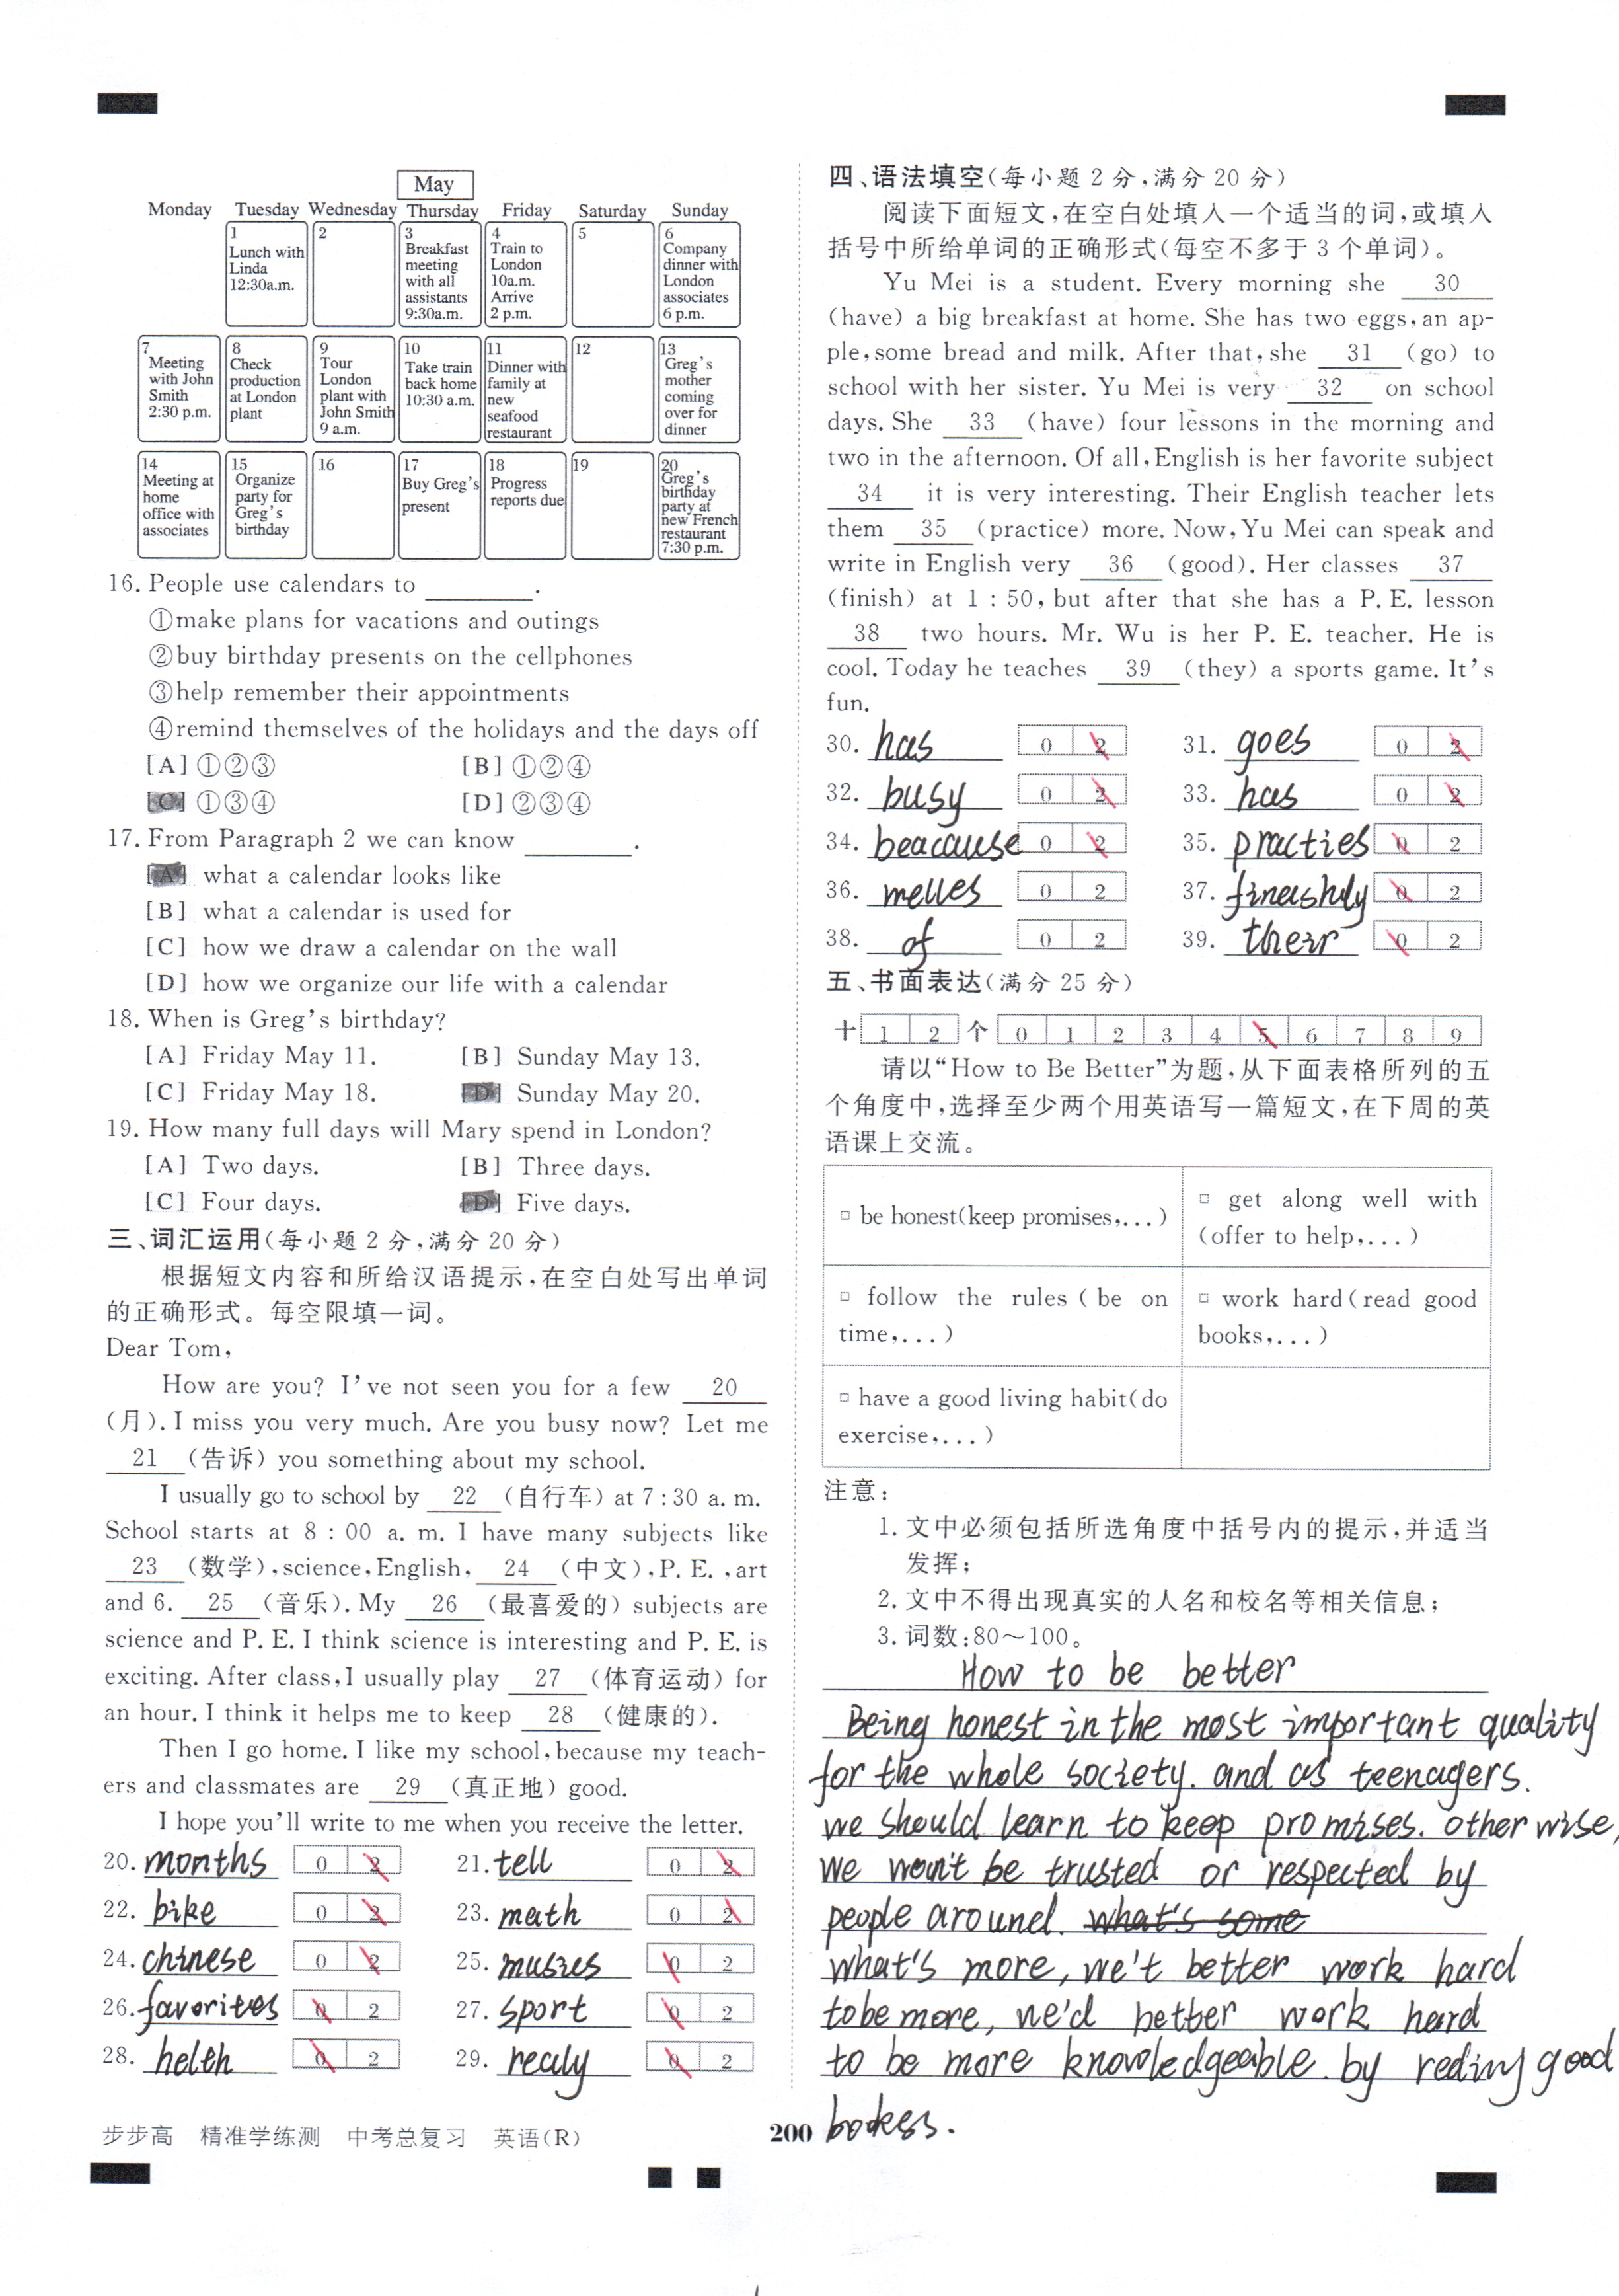 May
Monday Tuesday Wednesday Thursday Friday Saturday Sunday
1
Lunch with
Linda
12:30a.m.
2
3
Breakfast
meeting
with all
assistants
9:30a.m.
4
Train to
London
10a.m.
Arrive
2 p.m.
5
6
Company
dinner with
London
associates
6 p.m.
7
Meeting
with John
Smith
2:30 p.m.
8
Check
production
at London
plant
9
Tour
London
plant with
John Smith
9 a.m.
10
Take train
back home
10:30 a.m.
11
Dinner with
family at
new
seafood
restaurant
12
13
Greg's
mother
coming
over for
dinner
14
Meeting at
home
office with
associates
15
Organize
party for
Greg's
birthday
16
17
Buy Greg's
present
18
Progress
reports due
19
20
Greg's
birthday
party at
new French
restaurant
7:30 p.m.
16. People use calendars to ________.
①make plans for vacations and outings
②buy birthday presents on the cellphones
③help remember their appointments
④remind themselves of the holidays and the days off
[A] ①②③ [B] ①②④
[C] ①③④ [D] ②③④
17. From Paragraph 2 we can know ________.
[A] what a calendar looks like
[B] what a calendar is used for
[C] how we draw a calendar on the wall
[D] how we organize our life with a calendar
18. When is Greg's birthday?
[A] Friday May 11. [B] Sunday May 13.
[C] Friday May 18. [D] Sunday May 20.
19. How many full days will Mary spend in London?
[A] Two days. [B] Three days.
[C] Four days. [D] Five days.
三、词汇运用(每小题 2 分,满分 20 分)
根据短文内容和所给汉语提示,在空白处写出单词
的正确形式。每空限填一词。
Dear Tom,
How are you? I've not seen you for a few 20
(月). I miss you very much. Are you busy now? Let me
21 (告诉) you something about my school.
I usually go to school by 22 (自行车) at 7:30 a. m.
School starts at 8 : 00 a. m. I have many subjects like
23 (数学),science,English, 24 (中文),P. E. ,art
and 6. 25 (音乐). My 26 (最喜爱的) subjects are
science and P. E. I think science is interesting and P. E. is
exciting. After class,I usually play 27 (体育运动) for
an hour. I think it helps me to keep 28 (健康的).
Then I go home. I like my school,because my teach-
ers and classmates are 29 (真正地) good.
I hope you'll write to me when you receive the letter.
20. months 0 2 21. tell 0 2
22. bike 0 2 23. math 0 2
24. chinese 0 2 25. musies 0 2
26. favorites 0 2 27. sport 0 2
28. helth 0 2 29. realy 0 2
步步高 精准学练测 中考总复习 英语(R)
200
四、语法填空(每小题 2 分,满分 20 分)
阅读下面短文,在空白处填入一个适当的词,或填入
括号中所给单词的正确形式(每空不多于 3 个单词)。
Yu Mei is a student. Every morning she 30
(have) a big breakfast at home. She has two eggs,an ap-
ple,some bread and milk. After that,she 31 (go) to
school with her sister. Yu Mei is very 32 on school
days. She 33 (have) four lessons in the morning and
two in the afternoon. Of all,English is her favorite subject
34 it is very interesting. Their English teacher lets
them 35 (practice) more. Now,Yu Mei can speak and
write in English very 36 (good). Her classes 37
(finish) at 1 : 50,but after that she has a P. E. lesson
38 two hours. Mr. Wu is her P. E. teacher. He is
cool. Today he teaches 39 (they) a sports game. It's
fun.
30. has 0 2 31. goes 0 2
32. busy 0 2 33. has 0 2
34. beacause 0 2 35. practies 0 2
36. 0 2 37. 0 2
38. of 0 2 39. their 0 2
五、书面表达(满分 25 分)
十 1 2 个 0 1 2 3 4 5 6 7 8 9
请以“How to Be Better”为题,从下面表格所列的五
个角度中,选择至少两个用英语写一篇短文,在下周的英
语课上交流。
□ be honest(keep promises,...)
□ get along well with
(offer to help,...)
□ follow the rules (be on
time,...)
□ work hard(read good
books,...)
□ have a good living habit(do
exercise,...)
注意:
1. 文中必须包括所选角度中括号内的提示,并适当
发挥;
2. 文中不得出现真实的人名和校名等相关信息;
3. 词数:80～100。
How to be better
Being honest in the most important quality
for the whole society. and as teenagers.
we should learn to keep promises. otherwise,
we won't be trusted or respected by
people around. what's some
what's more, we't better work hard
to be more, we'd better work hard
to be more knowledgeable. by reding good
bookess.